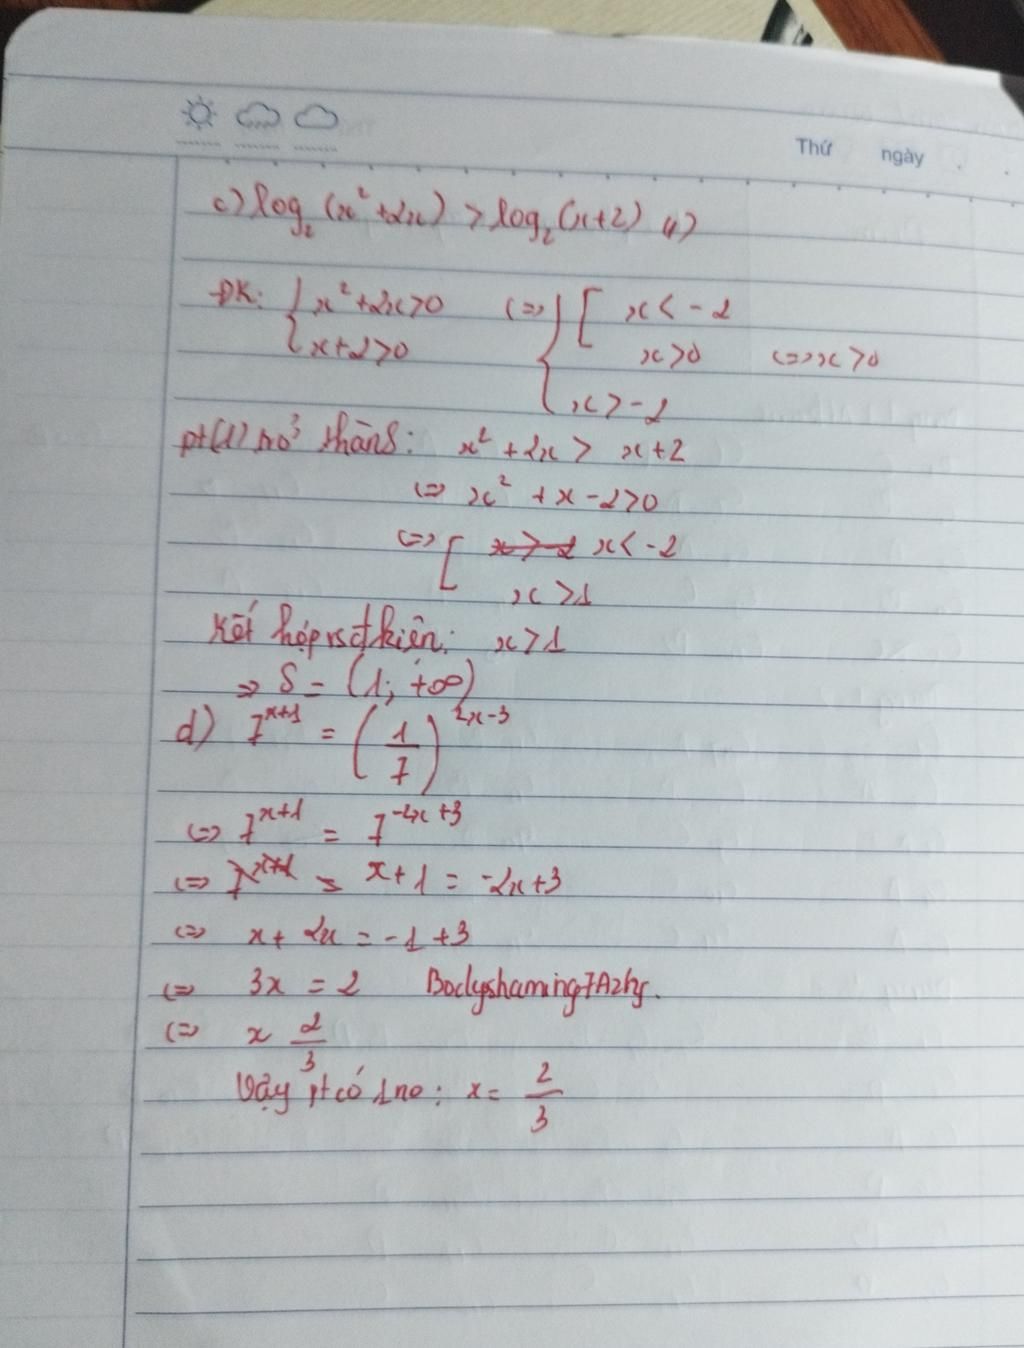 Thứ ngày
c) log₂(x²+2x) > log₂(x+2) (1)
ĐK: { x²+2x>0 (=> { [ x < -2
x+2>0 x>0 <=> x>0
x>-2
pt(1) trở thành: x²+2x > x+2
<=> x²+x-2>0
<=> [ x<-2
x>1
Kết hợp vs đkiện: x>1
=> S = (1; +∞)
d) 7^{x+1} = (1/7)^{2x-3}
<=> 7^{x+1} = 7^{-2x+3}
<=> x+1 = -2x+3
<=> x+2x = -1+3
<=> 3x = 2 Bodyshaming7Azhs.
<=> x 2/3
Vậy pt có 1 no: x = 2/3